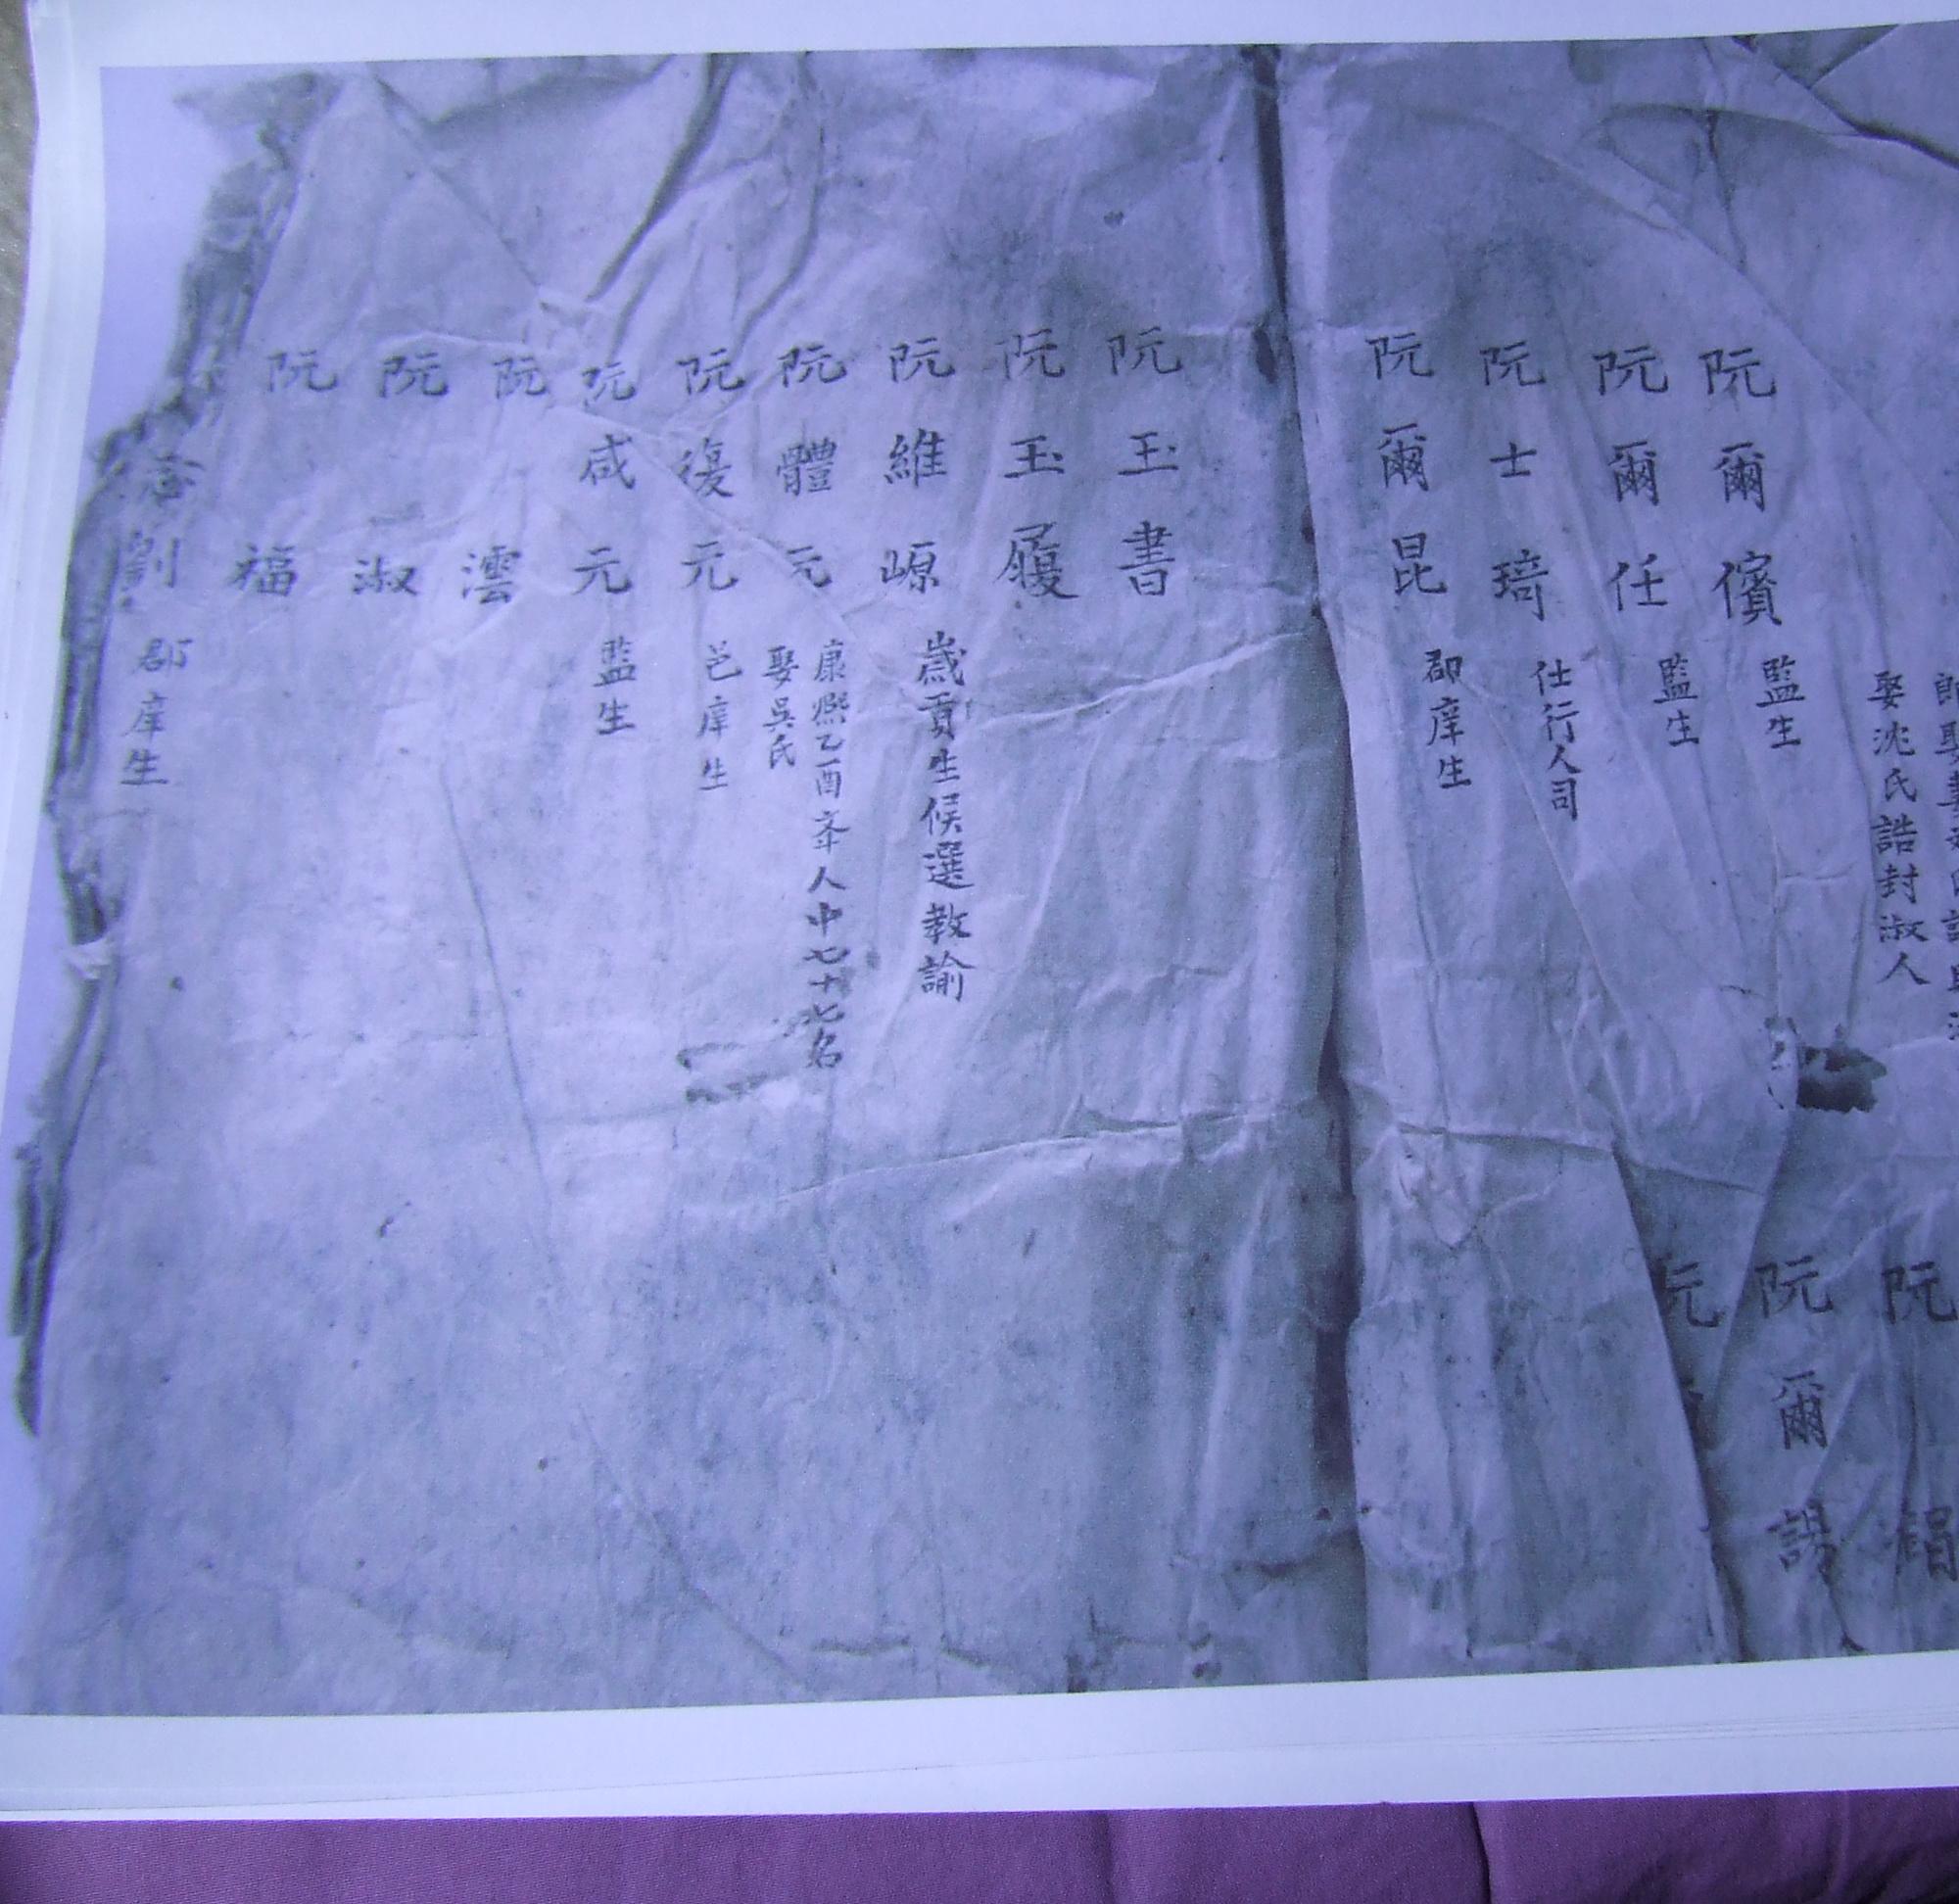 娶沈氏誥封淑人
阮爾儐 監生
阮爾任 監生
阮士琦 仕行人司
阮爾昆 郡庠生
阮玉書
阮玉履
阮維嫄 歲貢生候選教諭
阮體元 康熙乙酉夅人中七十七名
娶吳氏
阮復元 邑庠生
阮咸元 監生
阮澐
阮淑
阮福
劉 郡庠生
阮
阮爾諹
阮